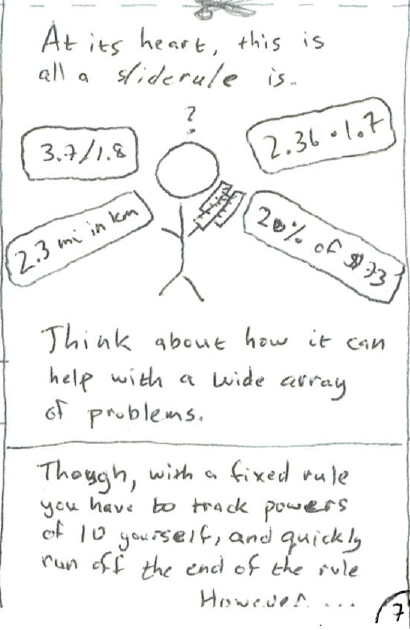 At its heart, this is
all a sliderule is.
?
3.7/1.8
2.36 · 1.7
2.3 mi in km
20% of $33
Think about how it can
help with a wide array
of problems.
Though, with a fixed rule
you have to track powers
of 10 yourself, and quickly
run off the end of the rule
However ...
7